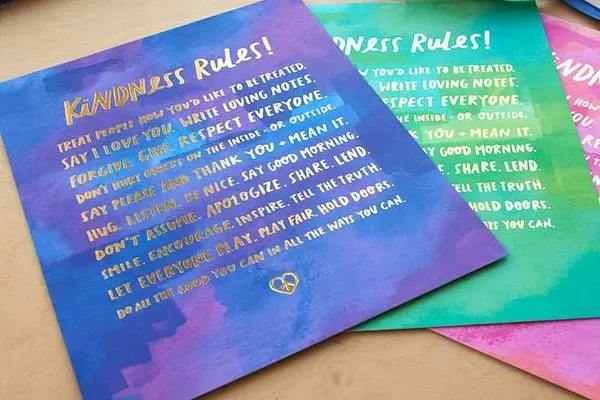 KINDNESS RULES!
TREAT PEOPLE HOW YOU'D LIKE TO BE TREATED.
SAY I LOVE YOU. WRITE LOVING NOTES.
FORGIVE. GIVE. RESPECT EVERYONE.
DON'T HURT OTHERS ON THE INSIDE - OR OUTSIDE.
SAY PLEASE AND THANK YOU + MEAN IT.
HUG. LISTEN. BE NICE. SAY GOOD MORNING.
DON'T ASSUME. APOLOGIZE. SHARE. LEND.
SMILE. ENCOURAGE. INSPIRE. TELL THE TRUTH.
LET EVERYONE PLAY. PLAY FAIR. HOLD DOORS.
DO ALL THE GOOD YOU CAN IN ALL THE WAYS YOU CAN.
NDNESS RULES!
HOW YOU'D LIKE TO BE TREATED.
WRITE LOVING NOTES.
RESPECT EVERYONE.
THE INSIDE - OR OUTSIDE.
YOU + MEAN IT.
GOOD MORNING.
SHARE. LEND.
TELL THE TRUTH.
HOLD DOORS.
WAYS YOU CAN.
KINDN